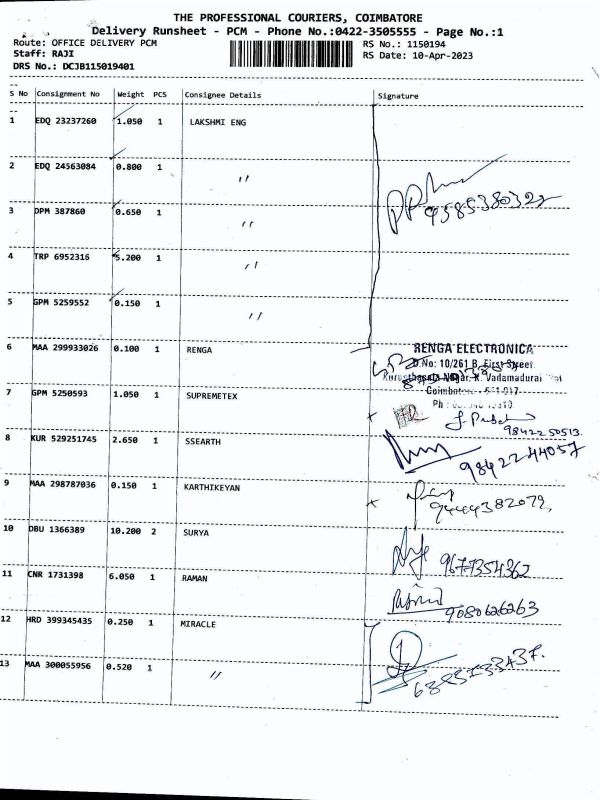 THE PROFESSIONAL COURIERS, COIMBATORE
Delivery Runsheet - PCM - Phone No.:0422-3505555 - Page No.:1
Route: OFFICE DELIVERY PCM
RS No.: 1150194
Staff: RAJI
RS Date: 10-Apr-2023
DRS No.: DCJB115019401
S No Consignment No Weight PCS Consignee Details Signature
1 EDQ 23237260 1.050 1 LAKSHMI ENG
2 EDQ 24563084 0.800 1 〃
3 DPM 387860 0.650 1 〃
9585380322
4 TRP 6952316 5.200 1 〃
5 GPM 5259552 0.150 1 〃
6 MAA 299933026 0.100 1 RENGA
RENGA ELECTRONICA
D.No: 10/261 B, First Street
Nagar, K. Vadamadurai
Coimbatore
7 GPM 5250593 1.050 1 SUPREMETEX
98422 50513
8 KUR 529251745 2.650 1 SSEARTH
98422 44057
9 MAA 298787036 0.150 1 KARTHIKEYAN
9444382079
10 DBU 1366389 10.200 2 SURYA
9677354362
11 CNR 1731398 6.050 1 RAMAN
9080626263
12 HRD 399345435 0.250 1 MIRACLE
13 MAA 300055956 0.520 1 〃